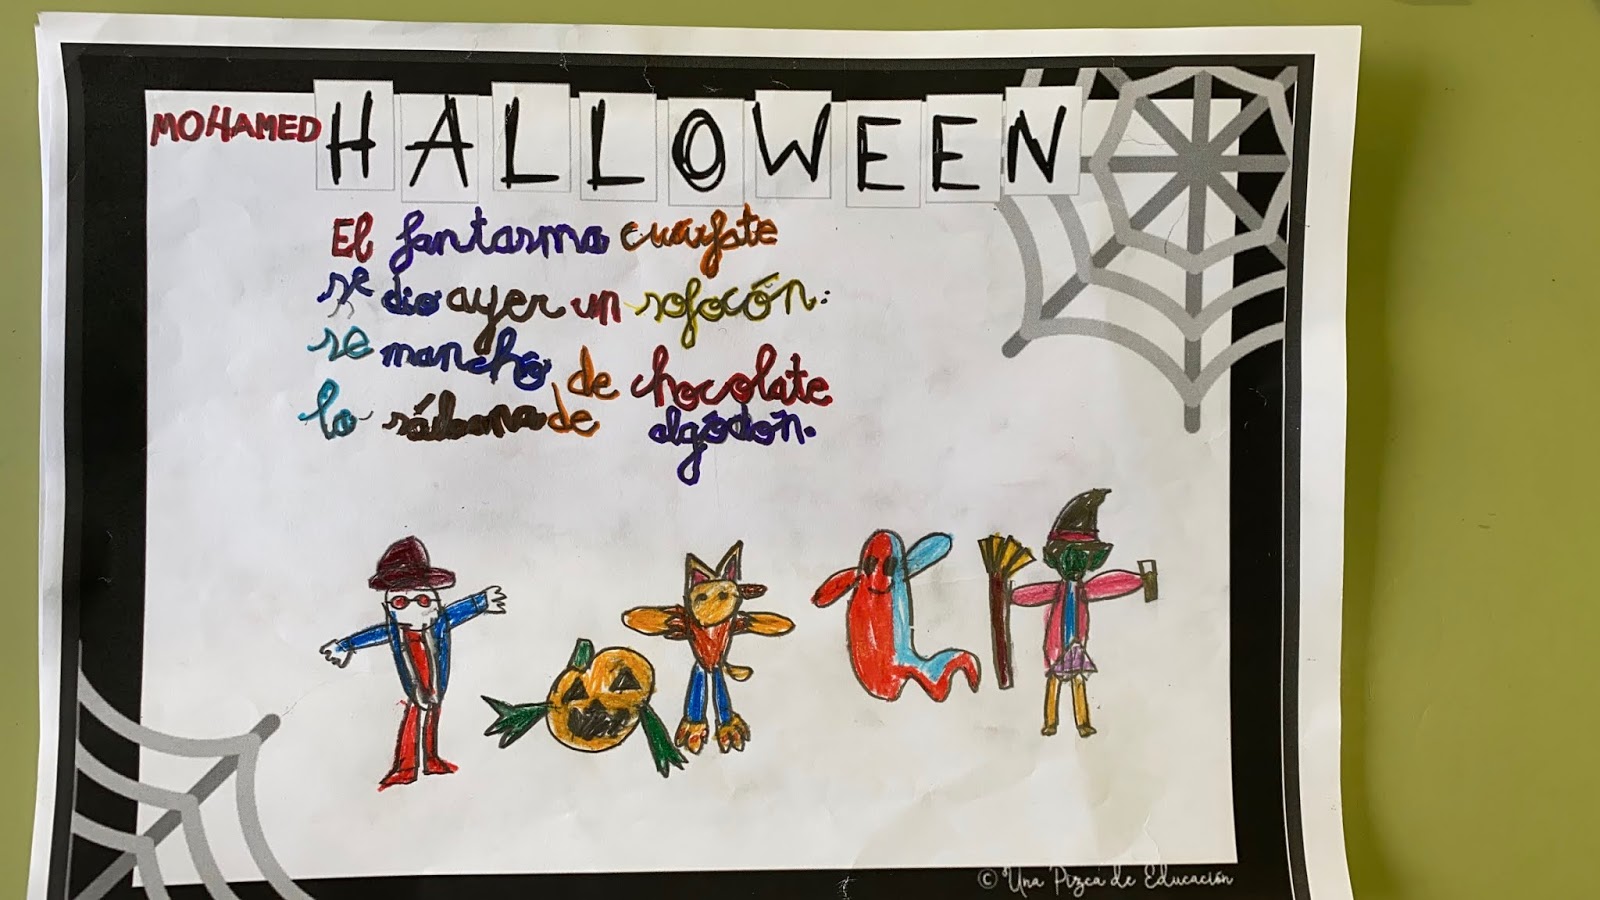 MOHAMED HALLOWEEN
El fantasma cuayate
se dio ayer un sofocón:
se manchó de chocolate
la sábana de algodón.
© Una Pizca de Educación